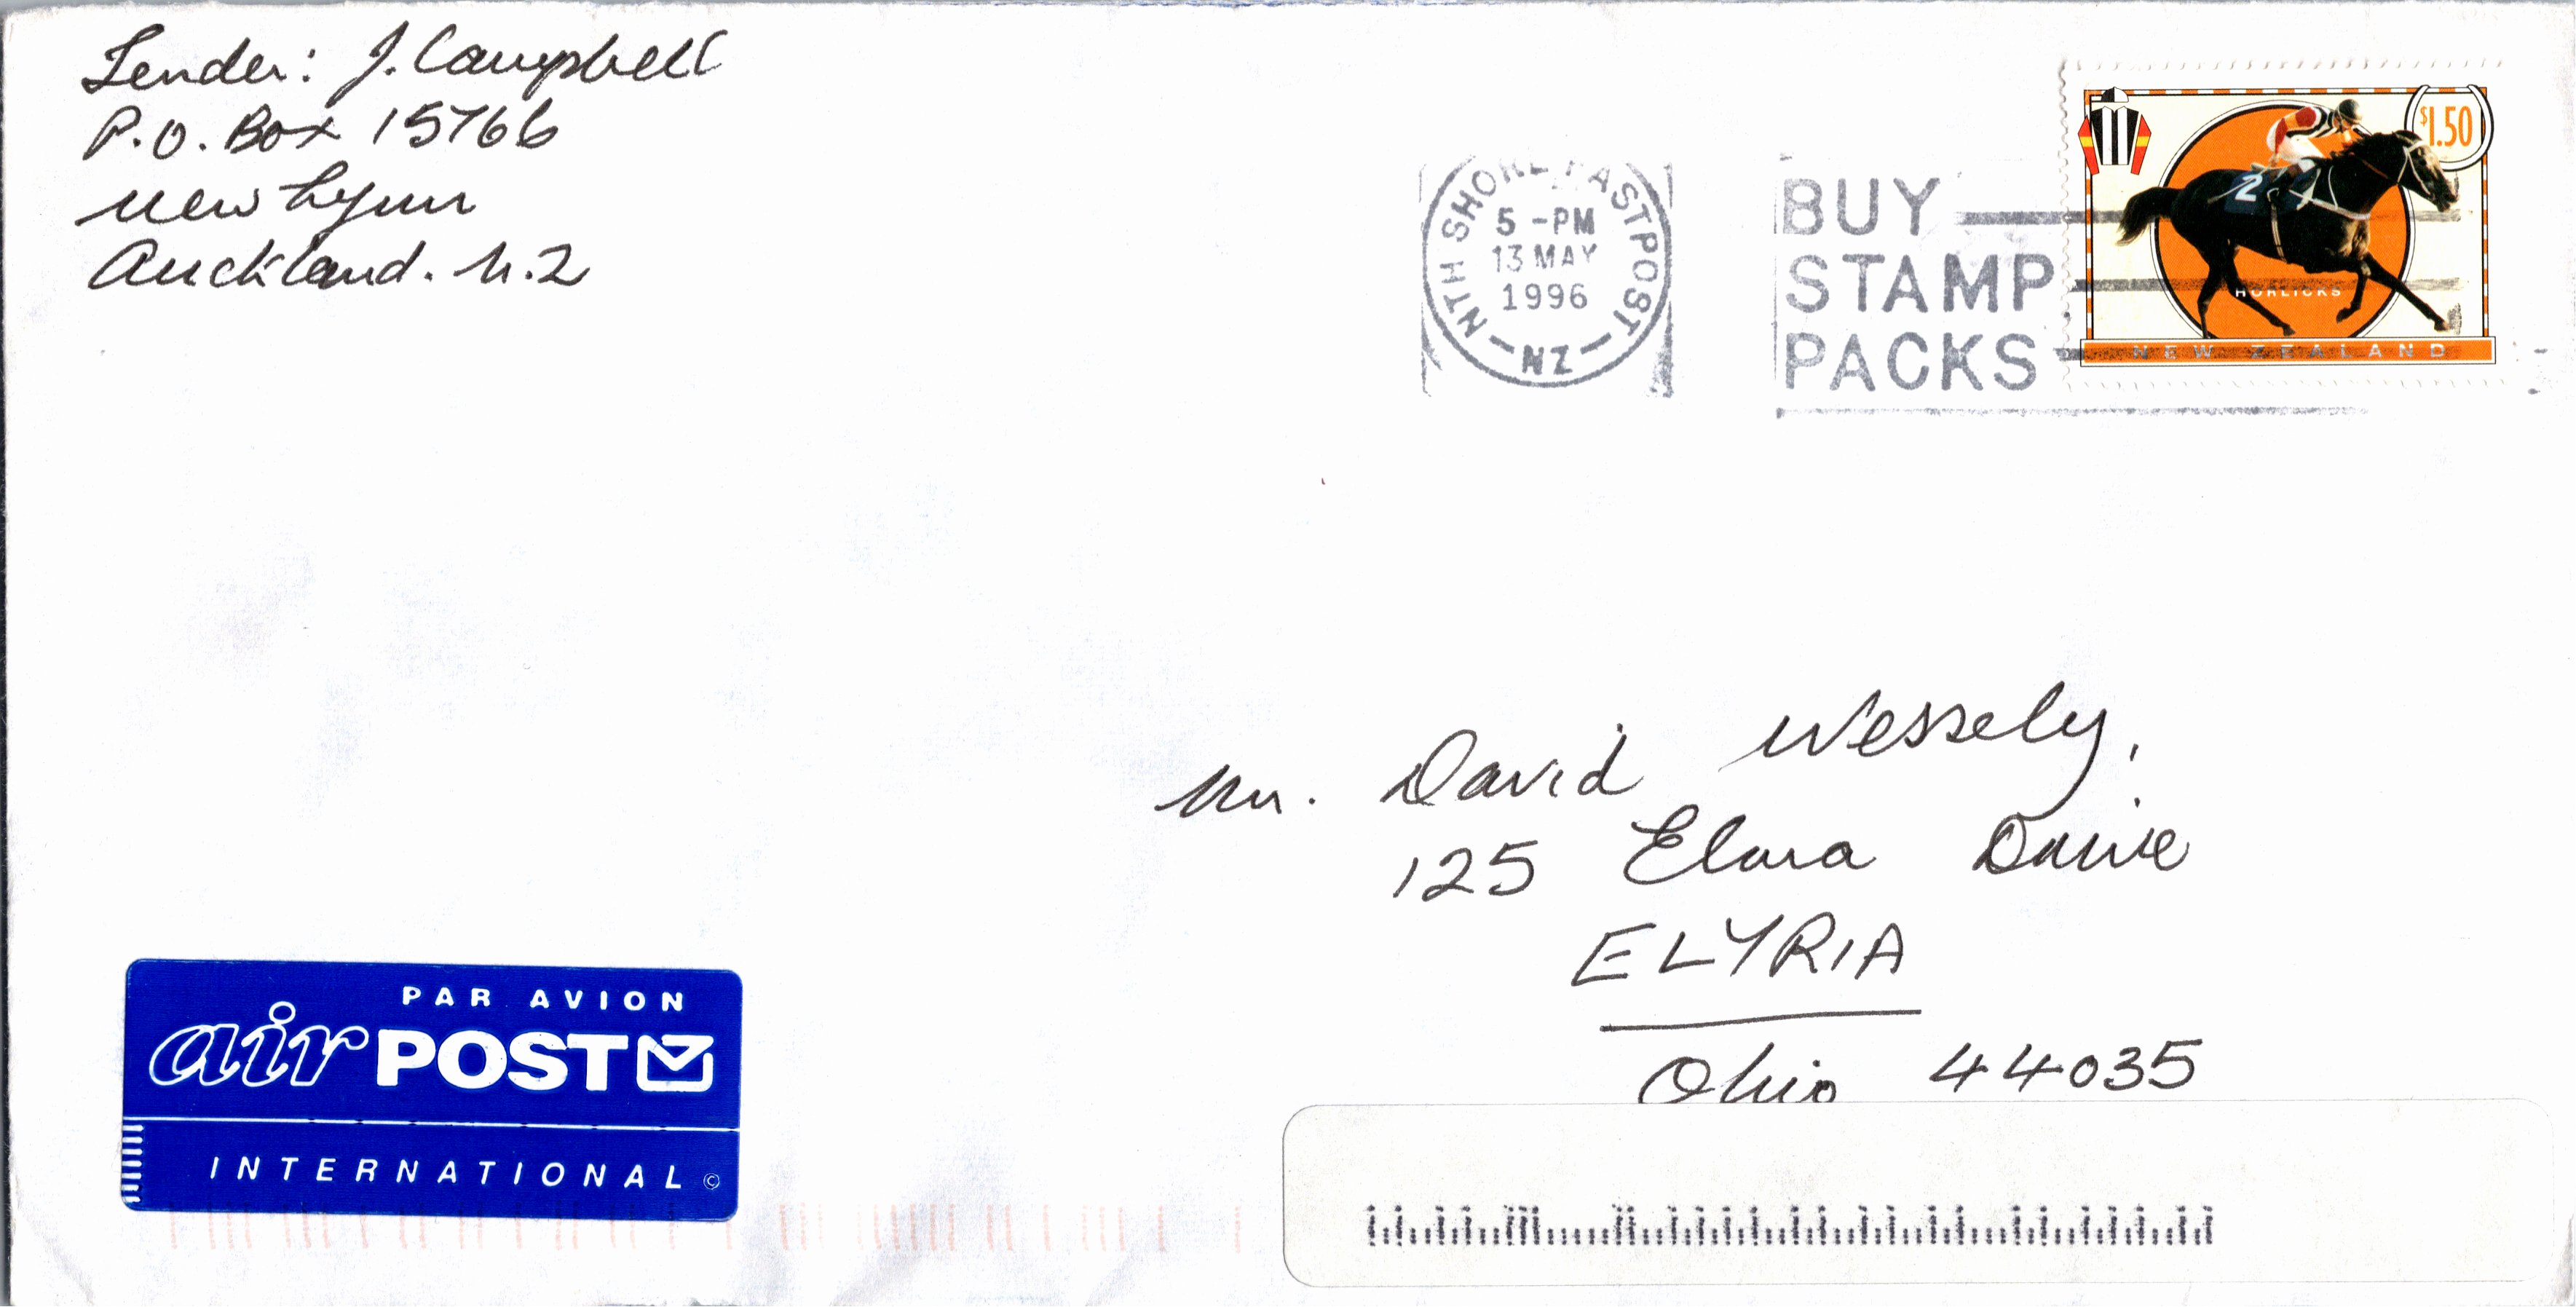 Sender: J. Campbell
P.O. Box 15766
New Lynn
Auckland. N.Z
NTH SHORE FASTPOST
5 -PM
13 MAY
1996
NZ
BUY
STAMP
PACKS
$1.50
2
HORLICKS
NEW ZEALAND
Mr. David Wessely,
125 Elmra Drive
ELYRIA
Ohio 44035
PAR AVION
air POST
INTERNATIONAL ©